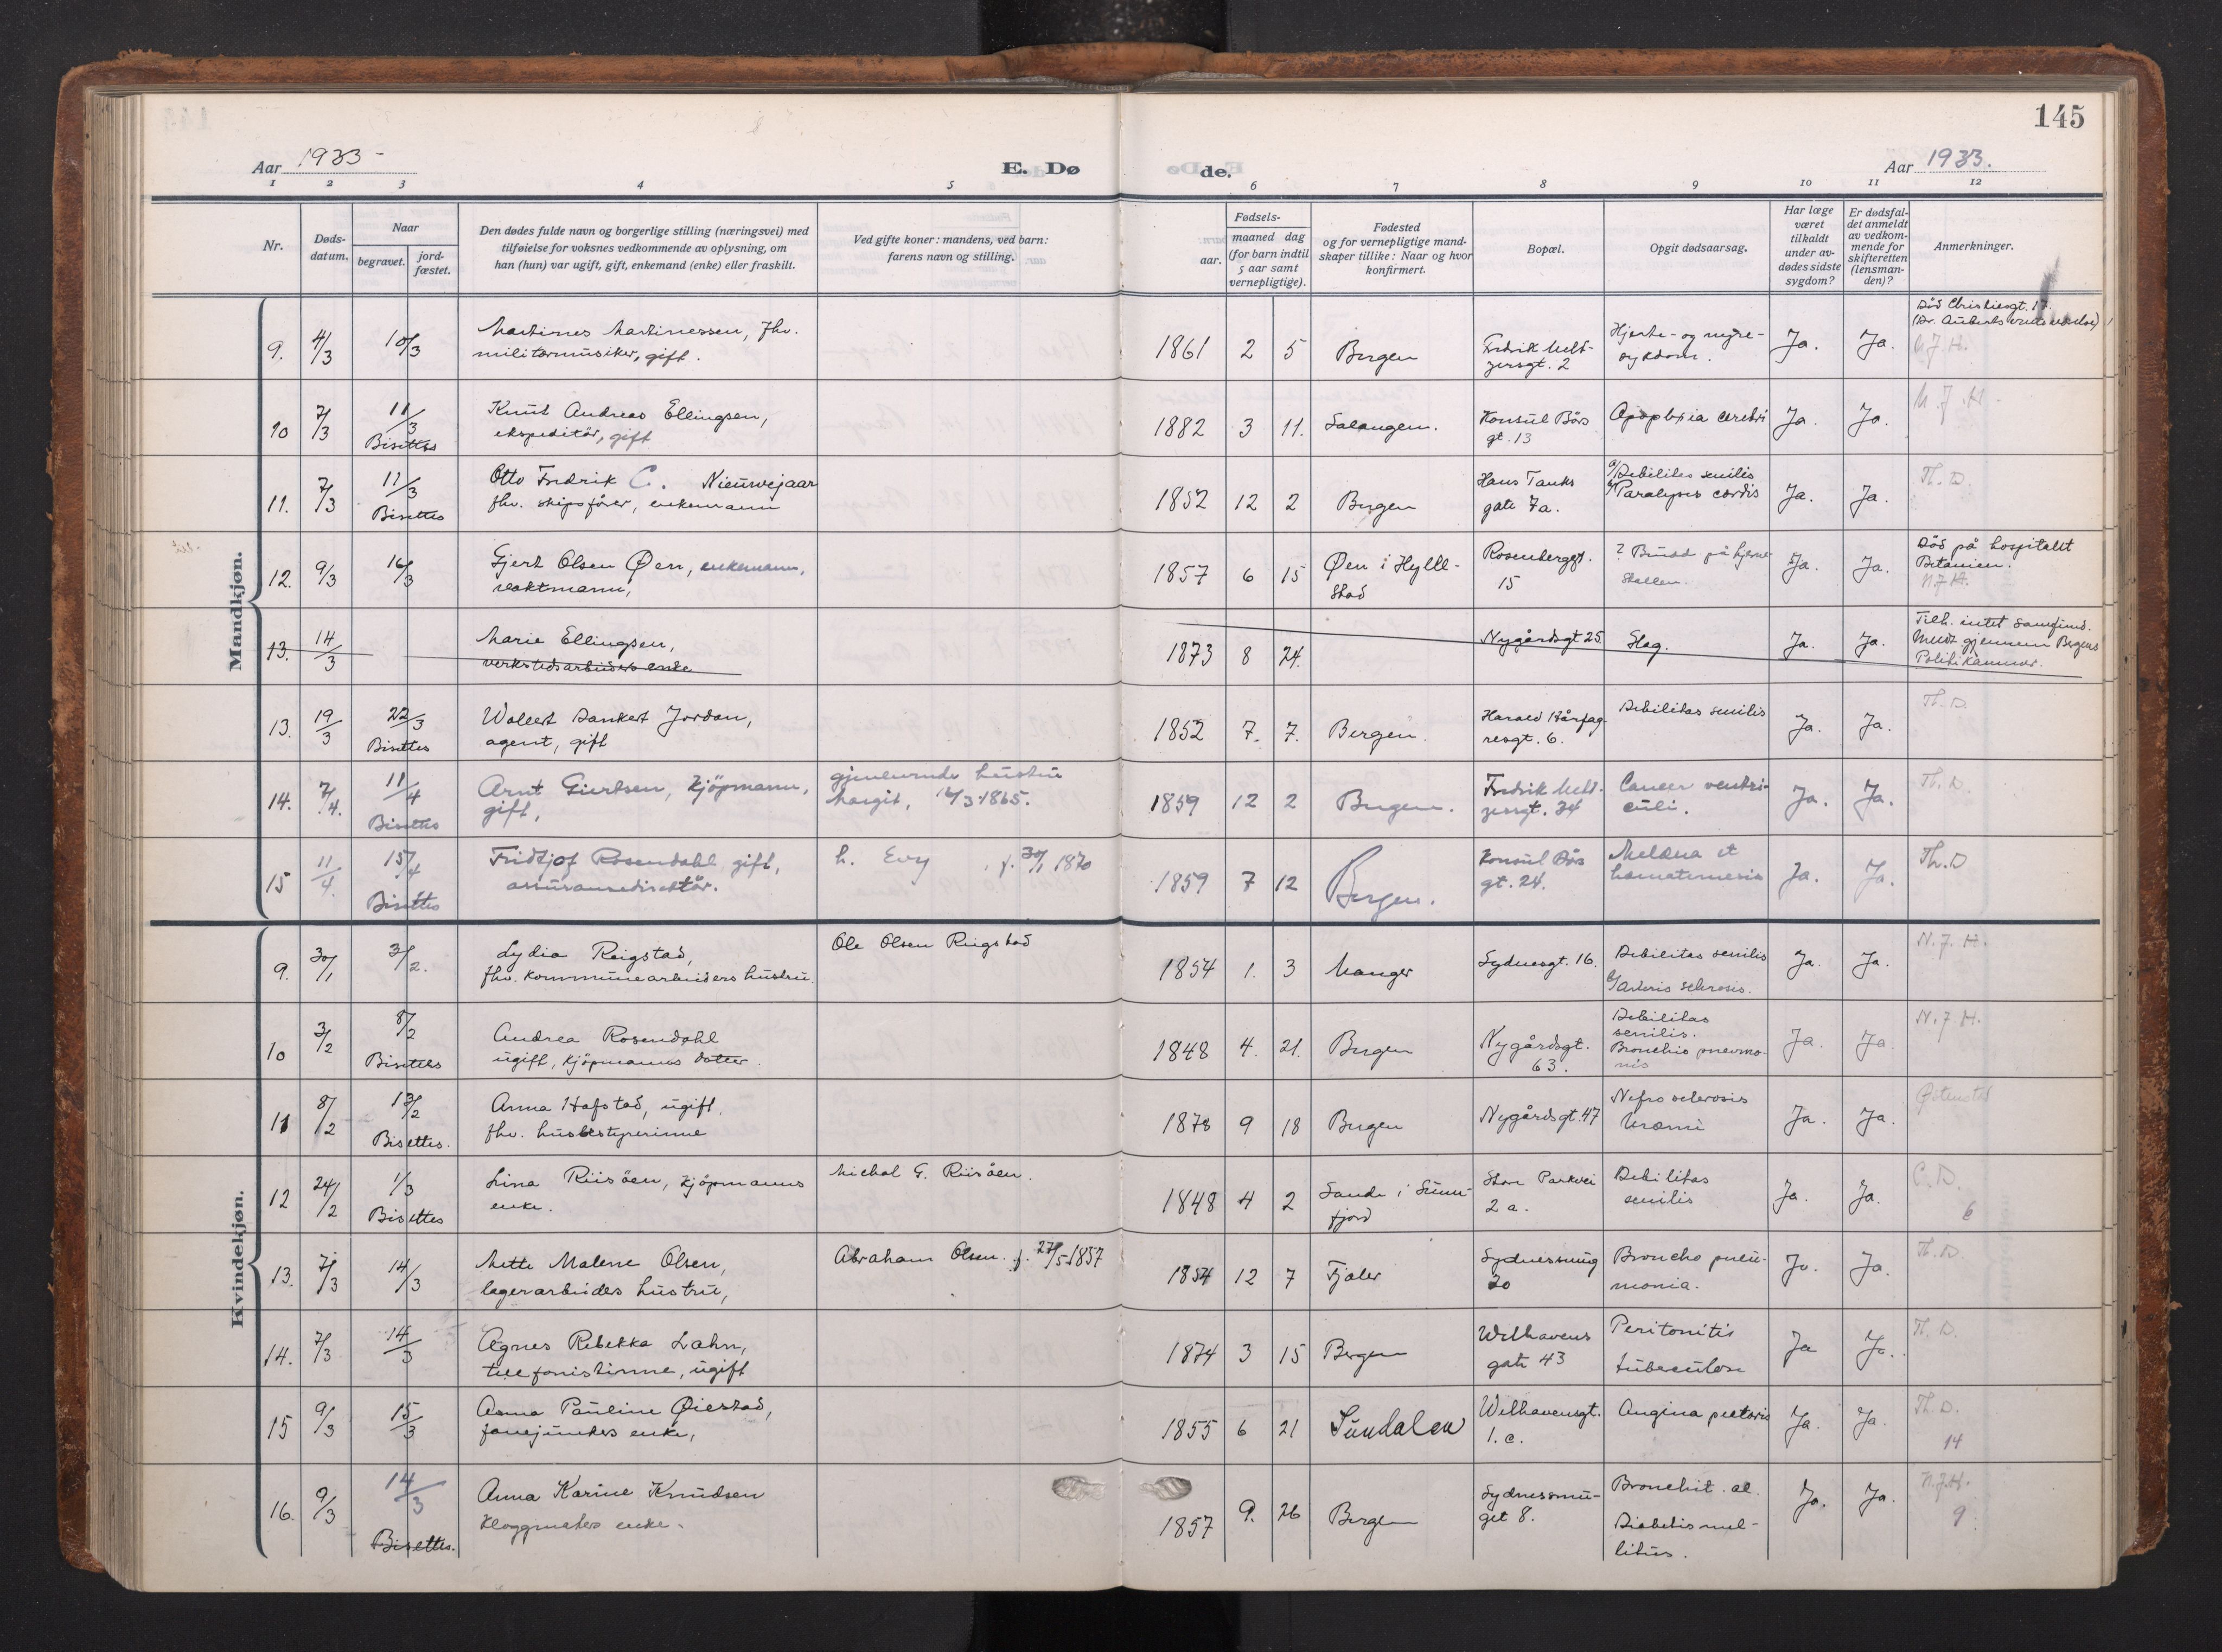 145
Aar 1933 -
E. Dø
de.
Aar 1933.
1 2 3 4 5 6 7 8 9 10 11 12
Nr.
Døds-
datum.
Naar
begravet.
jord-
fæstet.
Den dødes fulde navn og borgerlige stilling (næringsvei) med
tilføielse for voksnes vedkommende av oplysning, om
han (hun) var ugift, gift, enkemand (enke) eller fraskilt.
Ved gifte koner: mandens, ved barn:
farens navn og stilling.
Fødsels-
aar.
maaned dag
(for barn indtil
5 aar samt
vernepligtige).
Fødested
og for vernepligtige mand-
skaper tillike: Naar og hvor
konfirmert.
Bopæl.
Opgit dødsaarsag.
Har læge
været
tilkaldt
under av-
dødes sidste
sygdom?
Er dødsfal-
det anmeldt
av vedkom-
mende for
skifteretten
(lensman-
den)?
Anmerkninger.
Mandkjøn.
9. 4/3 10/3 Martines Martinessen, fhv.
militærmusiker, gift.
1861 2 5 Bergen
Fredrik Melt-
zersgt. 2
Hjerte- og nyre-
sykdom.
Ja. Ja.
Död Christiesgt. 17.
N.J.H.
10 7/3 11/3 Bisettes
Knut Andreas Ellingsen,
ekspeditör, gift
1882 3 11. Salangen.
Konsul Börs
gt. 13
Apoplexia cerebri
Ja. Ja.
N.J.H.
11. 7/3 11/3 Bisettes
Otto Fredrik C. Nieuwejaar
fhv. skipsfører, enkemann
1852 12 2 Bergen
Hans Tanks
gate 7a.
a/Debilitas senilis
b/Paralysis cordis
Ja. Ja.
Th. D.
12. 9/3 16/3 Gjert Olsen Øen, enkemann,
vaktmann,
1857 6 15 Øen i Hylle-
stad
Rosenbergsgt.
15
? Brudd på hjerne-
skallen.
Ja. Ja.
Död på hospitalet
Betanien.
N.J.H.
13. 14/3 Marie Ellingsen,
verkstedsarbeiders enke
1873 8 24.
Nygårdsgt 25.
Slag.
Ja. Ja.
Tilh. intet samfund.
Meldt gjennem Bergens
Politikammer.
13. 19/3 22/3 Bisettes
Wollert Dankert Jordan,
agent, gift
1852 7. 7. Bergen.
Harald Hårfag-
resgt. 6.
Debilitas senilis
Ja. Ja.
Th. D.
14. 7/4. 11/4 Bisettes
Arnt Giertsen, kjöpmann,
gift,
gjenlevende hustru
Margit, 12/3 1865.
1859 12 2 Bergen.
Fredrik Melt-
zersgt. 34
Cancer ventri-
culi.
Ja. Ja.
Th. D.
15 11/4. 15/4 Bisettes
Fridtjof Rosendahl gift,
assuransedirektör.
h. Evy , f. 30/1 1870
1859 7 12 Bergen.
Konsul Börs
gt. 24.
Melæna et
hæmatemesis
Ja. Ja.
Th. D
Kvindekjøn.
9. 30/1 3/2. Lydia Reigstad,
fhv. kommunearbeiders hustru.
Ole Olsen Reigstad
1854 1. 3 Manger
Sydnesgt. 16.
Debilitas senilis
b/Arterio sclerosis.
Ja. Ja.
N.J.H.
10 3/2 8/2 Bisettes
Andrea Rosendahl
ugift, kjöpmanns datter.
1848 4. 21. Bergen
Nygårdsgt.
63.
Debilitas
senilis.
Bronchio pnevmo-
nis
Ja. Ja
N.J.H.
11 8/2 13/2 Bisettes.
Anna Hafstad, ugift,
fhv. husbestyrerinne
1878 9 18 Bergen
Nygårdsgt. 47
Nefro sclerosis
Uræmi
Ja. Ja.
12 24/2 1/3 Bisettes
Lina Riisöen, kjöpmanns
enke.
Michal G. Riisöen.
1848 4 2 Sande i Sunn-
fjord
Store Parkvei
2 a.
Debilitas
senilis
Ja. Ja.
C.D.
6
13. 7/3 14/3 Mette Malene Olsen,
lagerarbeides hustru,
Abraham Olsen. f. 27/5 1857
1854 12 7 Fjaler
Sydnessmug
20
Broncho pneu-
monia.
Ja. Ja.
Th. D.
14. 7/3 14/3 Agnes Rebekka Lahn,
telefonistinne, ugift
1874 3 15 Bergen
Welhavens
gate 43
Peritonitis
tuberculosa
Ja Ja.
Th. D.
15 9/3 15/3 Anna Pauline Øiestad,
fanejunkers enke,
1855 6 21 Sundalen
Welhavensgt.
1. c.
Angina pectoris
Ja. Ja.
Th. D.
14
16. 9/3 14/3 Bisettes.
Anna Karine Knudsen
kloggmakers enke.
1857 9. 26 Bergen
Sydnessmu-
get 8.
Bronchit. al.
Diabetis mel-
litus.
Ja. Ja.
N.J.H.
9.